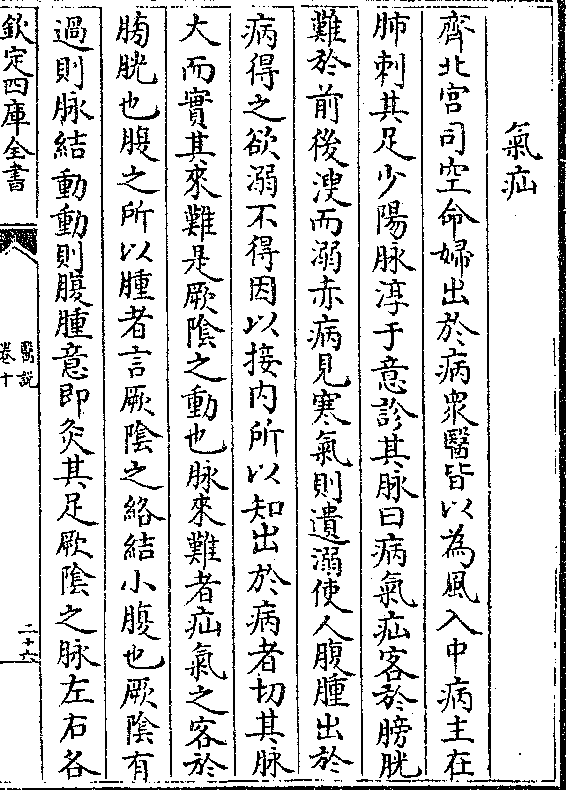 氣疝
齊北宮司空命婦出於病衆醫皆以為風入中病主在
肺刺其足少陽脉淳于意診其脉曰病氣疝客於膀胱
難於前後溲而溺赤病見寒氣則遺溺使人腹腫出於
病得之欲溺不得因以接内所以知出於病者切其脉
大而實其來難是厥陰之動也脉來難者疝氣之客於
膀胱也腹之所以腫者言厥陰之絡結小腹也厥陰有
過則脉結動動則腹腫意即灸其足厥陰之脉左右各
欽定四庫全書
醫説
卷十
二十六